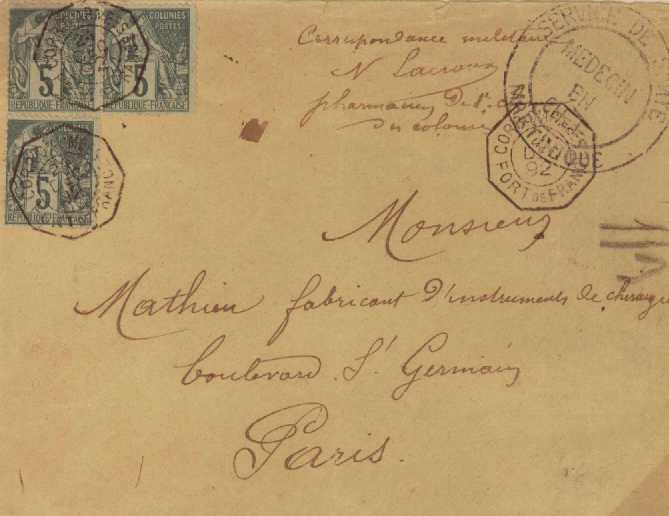 COLONIES
POSTES
5
5
RÉPUBLIQUE FRANÇAISE
RÉPUBLIQUE FRANÇAISE
5
RÉPUBLIQUE FRANÇAISE
Correspondance militaire
N Lacroux
pharmacien de 1e cl
des colonies
SERVICE DE
MEDECIN
EN
MARTINIQUE
COR
92
FORT DE FRAN
Monsieur
Mathieu fabricant d'instruments de chirurgie
boulevard St Germain
Paris.